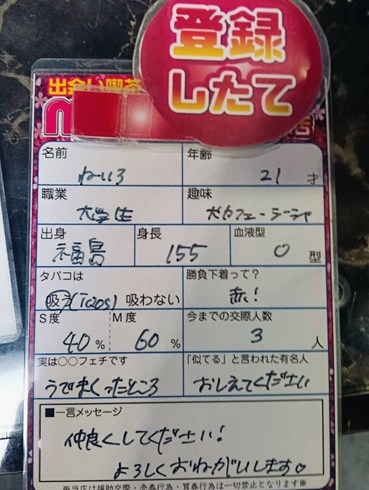 登録
したて
出会い喫茶
店
名前 ねいろ 年齢 21才
職業 大学生 趣味 犬カフェ・シーシャ
出身 福島 身長 155 血液型 O型
タバコは 吸う(IQOS) 吸わない 勝負下着って? 赤!
S度 40% M度 60% 今までの交際人数 3人
実は○○フェチです うでまくったところ 「似てる」と言われた有名人 おしえてください
■一言メッセージ
仲良くしてください!
よろしくおねがいします。
※当店は援助交際・売春行為・買春行為は一切禁止となります※